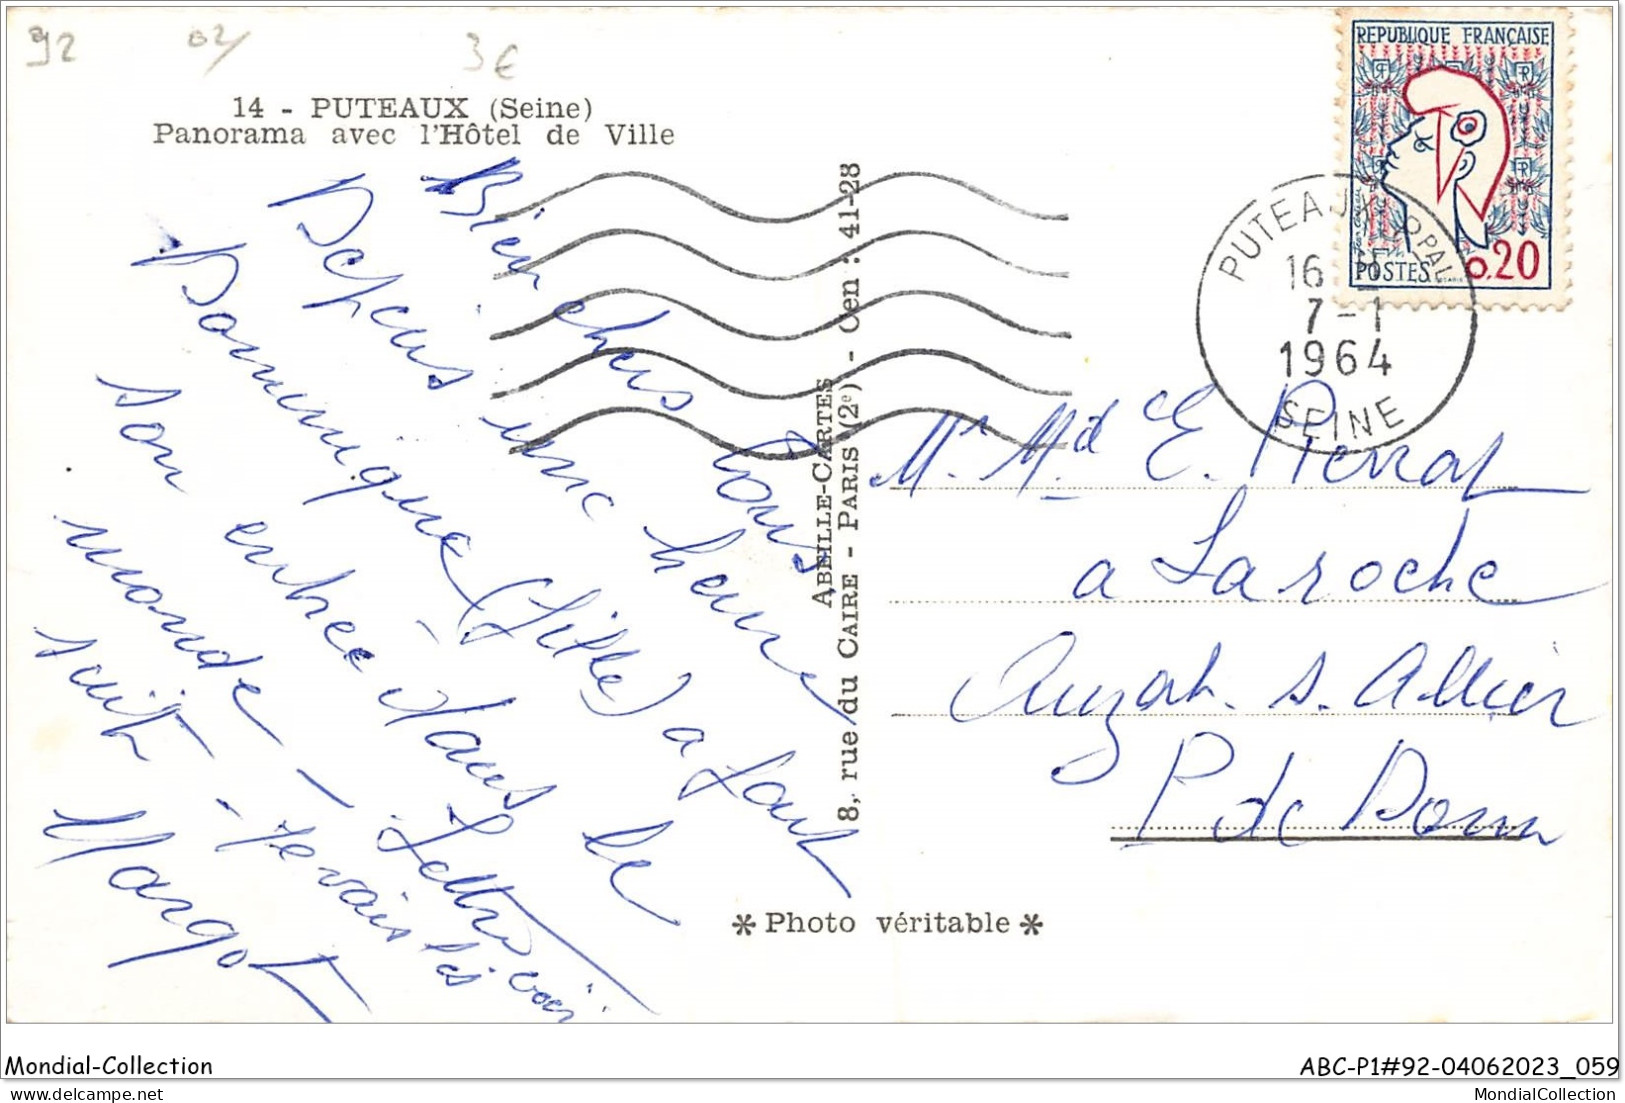 92 02/ 3€
14 - PUTEAUX (Seine)
Panorama avec l'Hôtel de Ville
REPUBLIQUE FRANÇAISE
POSTES
0.20
PUTEAUX PPAL
16 H
7 - 1
1964
SEINE
Bien chers tous
Depuis une heure
Dominique (fille) a fait
son entrée dans le
monde - Lettre
suit - Je vais les voir
Margot
ABEILLE-CARTES
8, rue du CAIRE - PARIS (2e) - Cen : 41-28
Mr Md E. Pierrat
a Laroche
Auzat s. Allier
P de Dome
* Photo véritable *
Mondial-Collection
ABC-P1#92-04062023_059
MondialCollection